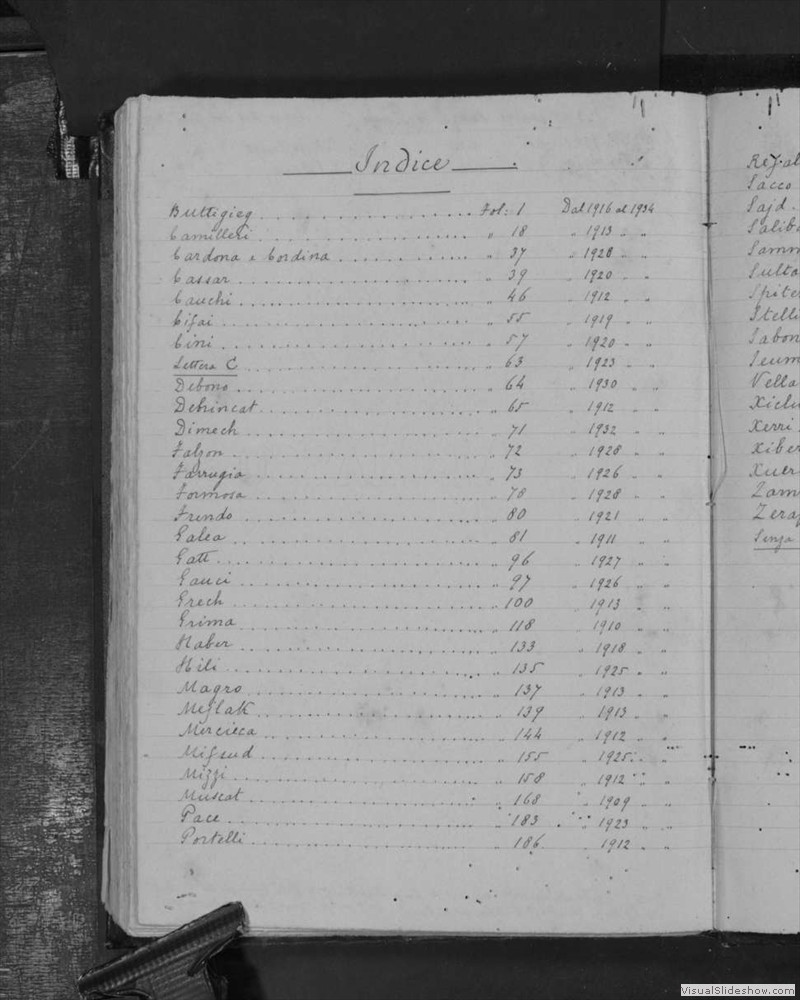 Indice
Buttigieg Fol: 1 Dal 1916 al 1934
Camilleri " 18 " 1913 " "
Cardona e Cordina " 37 " 1928 " "
Cassar " 39 " 1920 " "
Cauchi " 46 " 1912 " "
Cifai " 55 " 1919 " "
Cini " 57 " 1920 " "
Lettera C " 63 " 1923 " "
Debono " 64 " 1930 " "
Debrincat " 65 " 1912 " "
Dimech " 71 " 1932 " "
Falzon " 72 " 1928 " "
Farrugia " 73 " 1926 " "
Formosa " 78 " 1928 " "
Frendo " 80 " 1921 " "
Galea " 81 " 1911 " "
Gatt " 96 " 1927 " "
Gauci " 97 " 1926 " "
Grech " 100 " 1913 " "
Grima " 118 " 1910 " "
Haber " 133 " 1918 " "
Hili " 135 " 1925 " "
Magro " 137 " 1913 " "
Mejlak " 139 " 1913 " "
Mercieca " 144 " 1912 " "
Mifsud " 155 " 1925 " "
Mizzi " 158 " 1912 " "
Muscat " 168 " 1909 " "
Pace " 183 " 1923 " "
Portelli " 186 " 1912 " "
Sacco
Sajd
Saliba
Samm
Sulta
Spiter
Stelli
Sabon
Vella
Xiclu
Xerri
Xiber
Xuer
Zam
Zera
Senza
VisualSlideshow.com